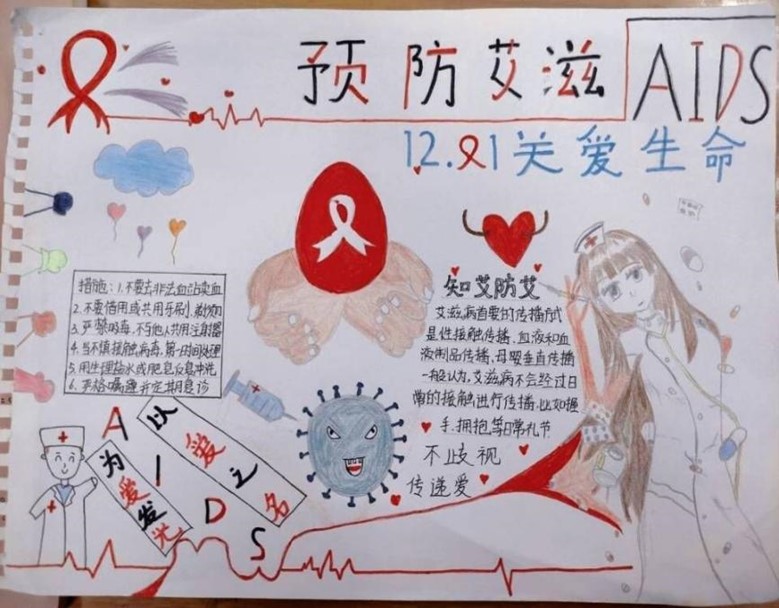 预防艾滋 AIDS
12.1关爱生命
措施：1.不要去非法血站卖血
2.不要借用或共用牙刷、剃须刀
3.严禁吸毒，不与他人共用注射器
4.当不慎接触病毒，第一时间处理
5.用生理盐水或肥皂反复冲洗
6.严格 并定期
知艾防艾
艾滋病直要的传播方式
是性接触传播，血液和血
液制品传播，母婴垂直传播
一般认为，艾滋病不会经过日
常的接触进行传播，比如握
手、拥抱等日常礼节
不歧视
传递爱
AIDS
以爱之名
为爱发光